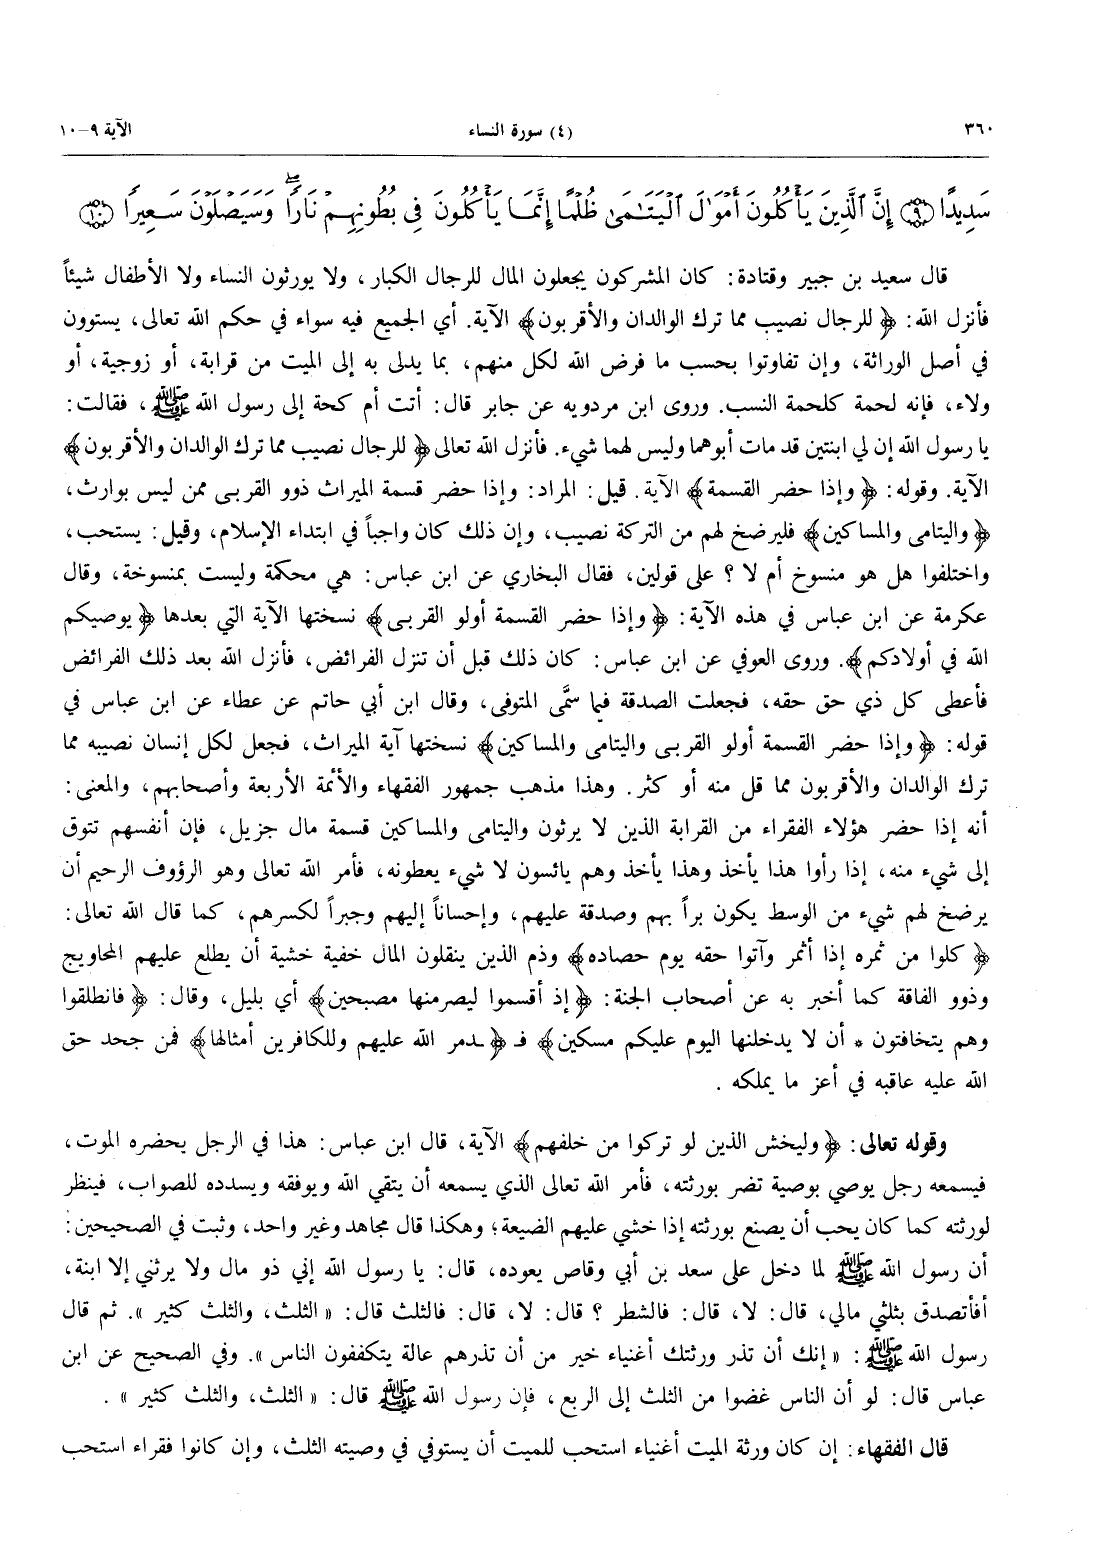 ٣٦٠ (٤) سورة النساء الآية ٩-١٠
سَدِيدًا ﴿٩﴾ إِنَّ ٱلَّذِينَ يَأْكُلُونَ أَمْوَٰلَ ٱلْيَتَٰمَىٰ ظُلْمًا إِنَّمَا يَأْكُلُونَ فِى بُطُونِهِمْ نَارًا ۖ وَسَيَصْلَوْنَ سَعِيرًا ﴿١٠﴾
قال سعيد بن جبير وقتادة: كان المشركون يجعلون المال للرجال الكبار، ولا يورثون النساء ولا الأطفال شيئاً
فأنزل الله: ﴿للرجال نصيب مما ترك الوالدان والأقربون﴾ الآية. أي الجميع فيه سواء في حكم الله تعالى، يستوون
في أصل الوراثة، وإن تفاوتوا بحسب ما فرض الله لكل منهم، بما يدلى به إلى الميت من قرابة، أو زوجية، أو
ولاء، فإنه لحمة كلحمة النسب. وروى ابن مردويه عن جابر قال: أتت أم كحة إلى رسول الله ﷺ، فقالت:
يا رسول الله إن لي ابنتين قد مات أبوهما وليس لهما شيء. فأنزل الله تعالى ﴿للرجال نصيب مما ترك الوالدان والأقربون﴾
الآية. وقوله: ﴿وإذا حضر القسمة﴾ الآية. قيل: المراد: وإذا حضر قسمة الميراث ذوو القربى ممن ليس بوارث،
﴿واليتامى والمساكين﴾ فليرضخ لهم من التركة نصيب، وإن ذلك كان واجباً في ابتداء الإسلام، وقيل: يستحب،
واختلفوا هل هو منسوخ أم لا؟ على قولين، فقال البخاري عن ابن عباس: هي محكمة وليست بمنسوخة، وقال
عكرمة عن ابن عباس في هذه الآية: ﴿وإذا حضر القسمة أولو القربى﴾ نسختها الآية التي بعدها ﴿يوصيكم
الله في أولادكم﴾. وروى العوفي عن ابن عباس: كان ذلك قبل أن تنزل الفرائض، فأنزل الله بعد ذلك الفرائض
فأعطى كل ذي حق حقه، فجعلت الصدقة فيما سمَّى المتوفى، وقال ابن أبي حاتم عن عطاء عن ابن عباس في
قوله: ﴿وإذا حضر القسمة أولو القربى واليتامى والمساكين﴾ نسختها آية الميراث، فجعل لكل إنسان نصيبه مما
ترك الوالدان والأقربون مما قل منه أو كثر. وهذا مذهب جمهور الفقهاء والأئمة الأربعة وأصحابهم، والمعنى:
أنه إذا حضر هؤلاء الفقراء من القرابة الذين لا يرثون واليتامى والمساكين قسمة مال جزيل، فإن أنفسهم تتوق
إلى شيء منه، إذا رأوا هذا يأخذ وهذا يأخذ وهم يائسون لا شيء يعطونه، فأمر الله تعالى وهو الرؤوف الرحيم أن
يرضخ لهم شيء من الوسط يكون براً بهم وصدقة عليهم، وإحساناً إليهم وجبراً لكسرهم، كما قال الله تعالى:
﴿كلوا من ثمره إذا أثمر وآتوا حقه يوم حصاده﴾ وذم الذين ينقلون المال خفية خشية أن يطلع عليهم المحاويج
وذوو الفاقة كما أخبر به عن أصحاب الجنة: ﴿إذ أقسموا ليصرمنها مصبحين﴾ أي بليل، وقال: ﴿فانطلقوا
وهم يتخافتون * أن لا يدخلنها اليوم عليكم مسكين﴾ فـ ﴿ـدمر الله عليهم وللكافرين أمثالها﴾ فمن جحد حق
الله عليه عاقبه في أعز ما يملكه .
وقوله تعالى: ﴿وليخش الذين لو تركوا من خلفهم﴾ الآية، قال ابن عباس: هذا في الرجل يحضره الموت،
فيسمعه رجل يوصي بوصية تضر بورثته، فأمر الله تعالى الذي يسمعه أن يتقي الله ويوفقه ويسدده للصواب، فينظر
لورثته كما كان يحب أن يصنع بورثته إذا خشي عليهم الضيعة؛ وهكذا قال مجاهد وغير واحد، وثبت في الصحيحين:
أن رسول الله ﷺ لما دخل على سعد بن أبي وقاص يعوده، قال: يا رسول الله إني ذو مال ولا يرثني إلا ابنة،
أفأتصدق بثلثي مالي، قال: لا، قال: فالشطر؟ قال: لا، قال: فالثلث قال: «الثلث، والثلث كثير». ثم قال
رسول الله ﷺ: «إنك أن تذر ورثتك أغنياء خير من أن تذرهم عالة يتكففون الناس». وفي الصحيح عن ابن
عباس قال: لو أن الناس غضوا من الثلث إلى الربع، فإن رسول الله ﷺ قال: «الثلث، والثلث كثير».
قال الفقهاء: إن كان ورثة الميت أغنياء استحب للميت أن يستوفي في وصيته الثلث، وإن كانوا فقراء استحب